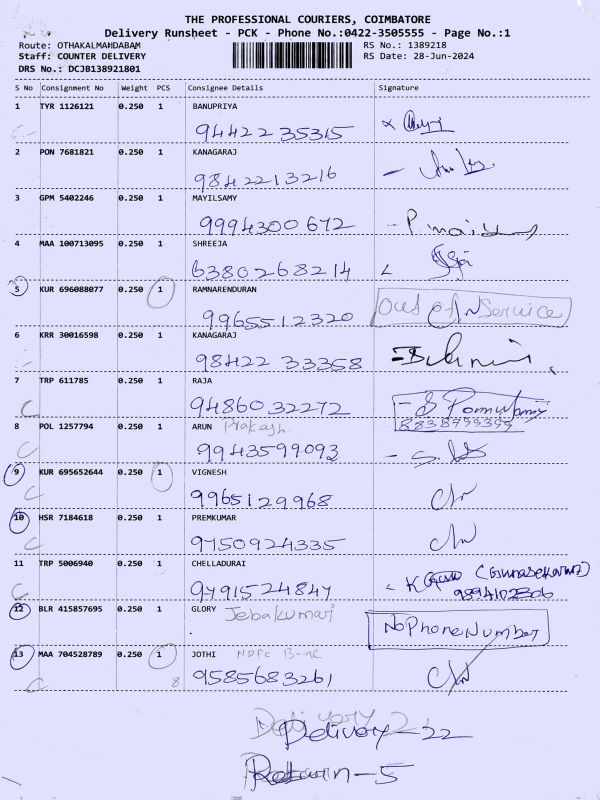 THE PROFESSIONAL COURIERS, COIMBATORE
Delivery Runsheet - PCK - Phone No.:0422-3505555 - Page No.:1
Route: OTHAKALMANDABAM RS No.: 1389218
Staff: COUNTER DELIVERY RS Date: 28-Jun-2024
DRS No.: DCJB138921801
S No Consignment No Weight PCS Consignee Details Signature
1 TYR 1126121 0.250 1 BANUPRIYA
94422 35315
2 PON 7681821 0.250 1 KANAGARAJ
9842213216
3 GPM 5402246 0.250 1 MAYILSAMY
9994300672
4 MAA 100713095 0.250 1 SHREEJA
6380268214
5 KUR 696088077 0.250 1 RAMNARENDURAN
9965512320 Out of Service
6 KRR 30016598 0.250 1 KANAGARAJ
98422 33358
7 TRP 611785 0.250 1 RAJA
9486032272
8 POL 1257794 0.250 1 ARUN Prakash
9943599093
9 KUR 695652644 0.250 1 VIGNESH
9965129968
10 HSR 7184618 0.250 1 PREMKUMAR
9750924335
11 TRP 5006940 0.250 1 CHELLADURAI
9791524847 (Gunasekaran)
12 BLR 415857695 0.250 1 GLORY Jebakumari
No Phone Number
13 MAA 704528789 0.250 1 JOTHI
9585683261
Delivery - 22
Return - 5